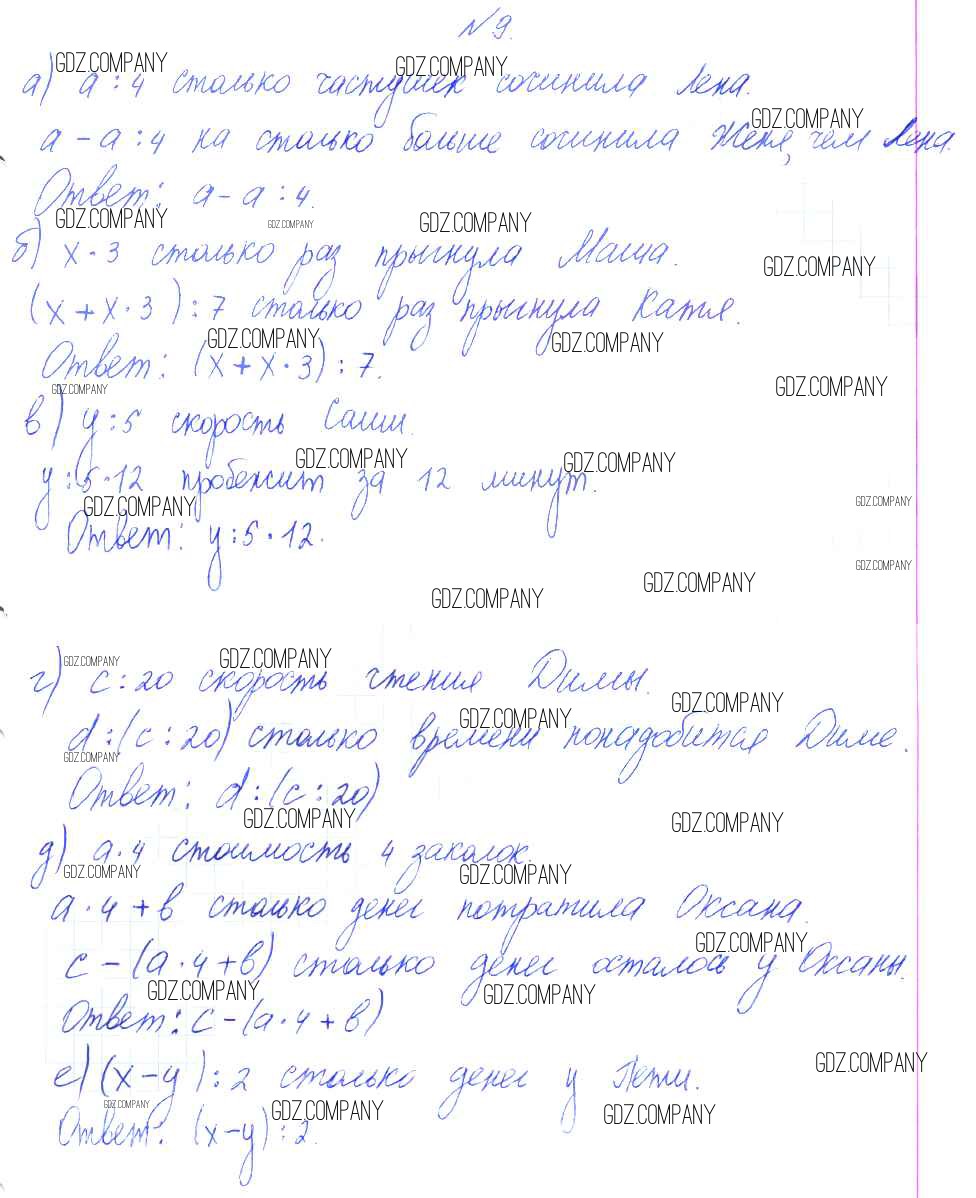 № 9.
GDZ.COMPANY GDZ.COMPANY
а) а : 4 столько частушек сочинила Лена.
GDZ.COMPANY
а - а : 4 на столько больше сочинила Женя, чем Лена.
Ответ: а - а : 4.
GDZ.COMPANY GDZ.COMPANY GDZ.COMPANY
б) х · 3 столько раз прыгнула Маша.
GDZ.COMPANY
(х + х · 3) : 7 столько раз прыгнула Катя.
GDZ.COMPANY GDZ.COMPANY
Ответ: (х + х · 3) : 7.
GDZ.COMPANY GDZ.COMPANY
в) у : 5 скорость Саши.
GDZ.COMPANY GDZ.COMPANY
у : 5 · 12 пробежит за 12 минут.
GDZ.COMPANY GDZ.COMPANY
Ответ: у : 5 · 12.
GDZ.COMPANY
GDZ.COMPANY GDZ.COMPANY
GDZ.COMPANY GDZ.COMPANY
г) с : 20 скорость чтения Димы.
GDZ.COMPANY GDZ.COMPANY
d : (с : 20) столько времени понадобится Диме.
GDZ.COMPANY
Ответ: d : (с : 20)
GDZ.COMPANY GDZ.COMPANY
д) а · 4 стоимость 4 заколок.
GDZ.COMPANY GDZ.COMPANY
а · 4 + в столько денег потратила Оксана.
GDZ.COMPANY
с - (а · 4 + в) столько денег осталось у Оксаны.
GDZ.COMPANY GDZ.COMPANY
Ответ: с - (а · 4 + в)
GDZ.COMPANY
е) (х - у) : 2 столько денег у Пети.
GDZ.COMPANY GDZ.COMPANY GDZ.COMPANY
Ответ: (х - у) : 2.